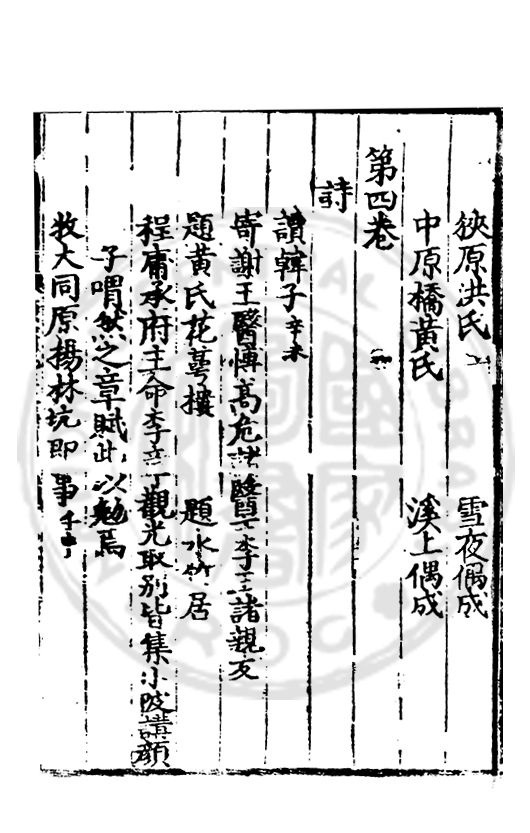 狹原洪氏 雪夜偶成
中原橋黃氏 溪上偶成
第四卷
詩
讀韓子辛未
寄謝王醫博高危諸醫與李王諸親友
題黃氏花萼樓 題水竹居
程庸承府主命李 丁觀光取別皆集小陂講顏
子喟然之章賦此以勉焉
牧大同原楊林坑即事